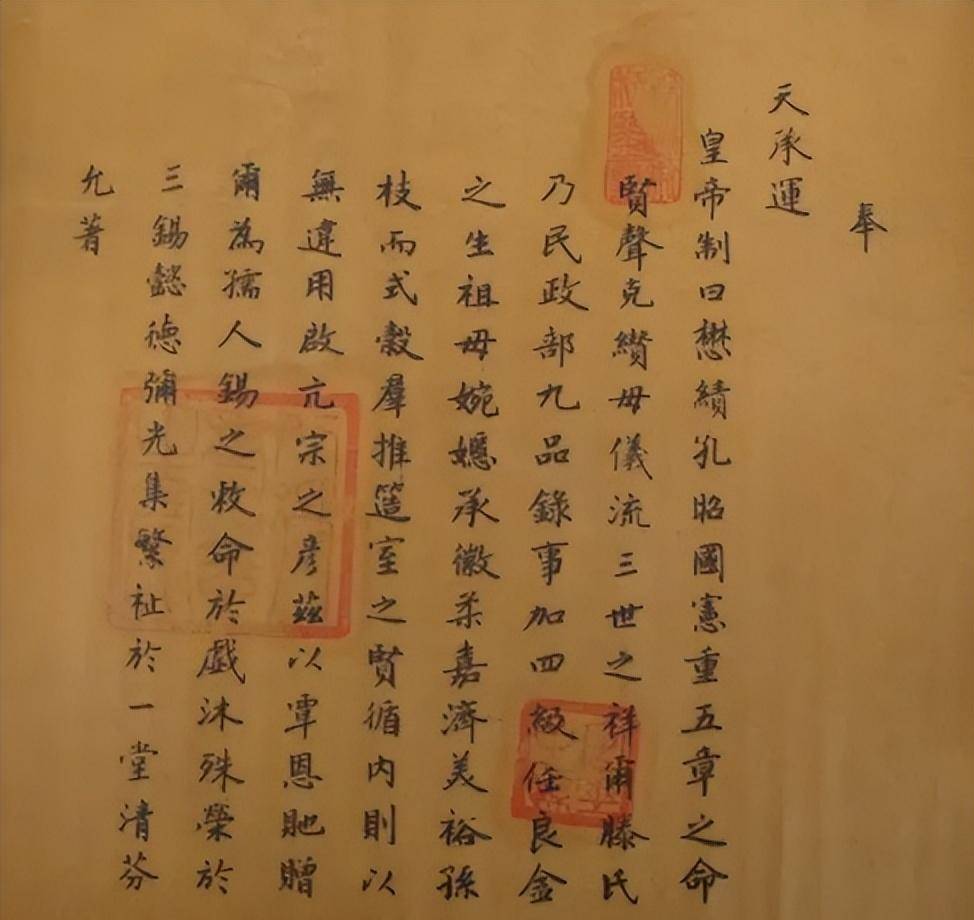 奉
天承運
皇帝制曰懋績孔昭國憲重五章之命
賢聲克纘母儀流三世之祥爾滕氏
乃民政部九品錄事加四級任良金
之生祖母婉嫕承徽柔嘉濟美裕孫
枝而式穀羣推簉室之賢循內則以
無違用啟亢宗之彥茲以覃恩貤贈
爾為孺人錫之敕命於戲沐殊榮於
三錫懿德彌光集繁祉於一堂清芬
允著